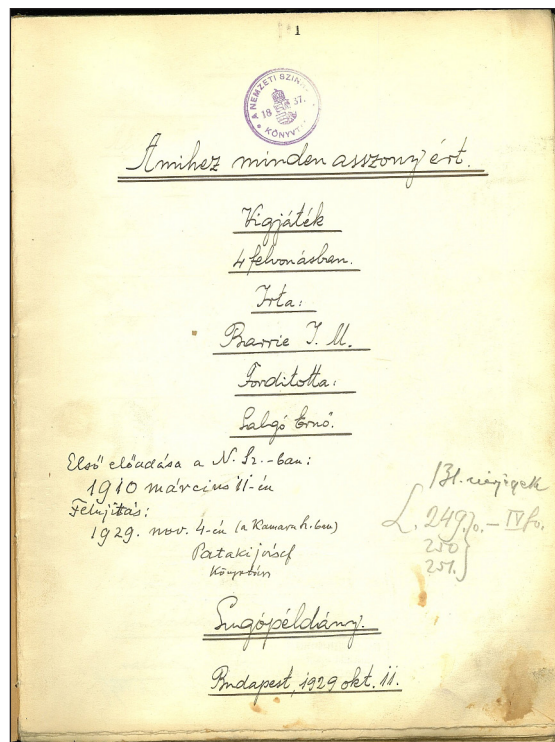 1
A NEMZETI SZINH
18 37.
KÖNYVT
Amihez minden asszony ért.
Vigjáték
4 felvonásban.
Irta:
Barrie J. M.
Forditotta:
Salgó Ernő.
Első előadása a N. Sz.-ban:
1910 március 11-én
Felujitás:
1929. nov. 4-én (a Kamara h.-ban)
Pataki József
Könyvtáros
131.
L. 249 IV fv.
250
251.
Sugópéldány.
Budapest, 1929 okt. 11.